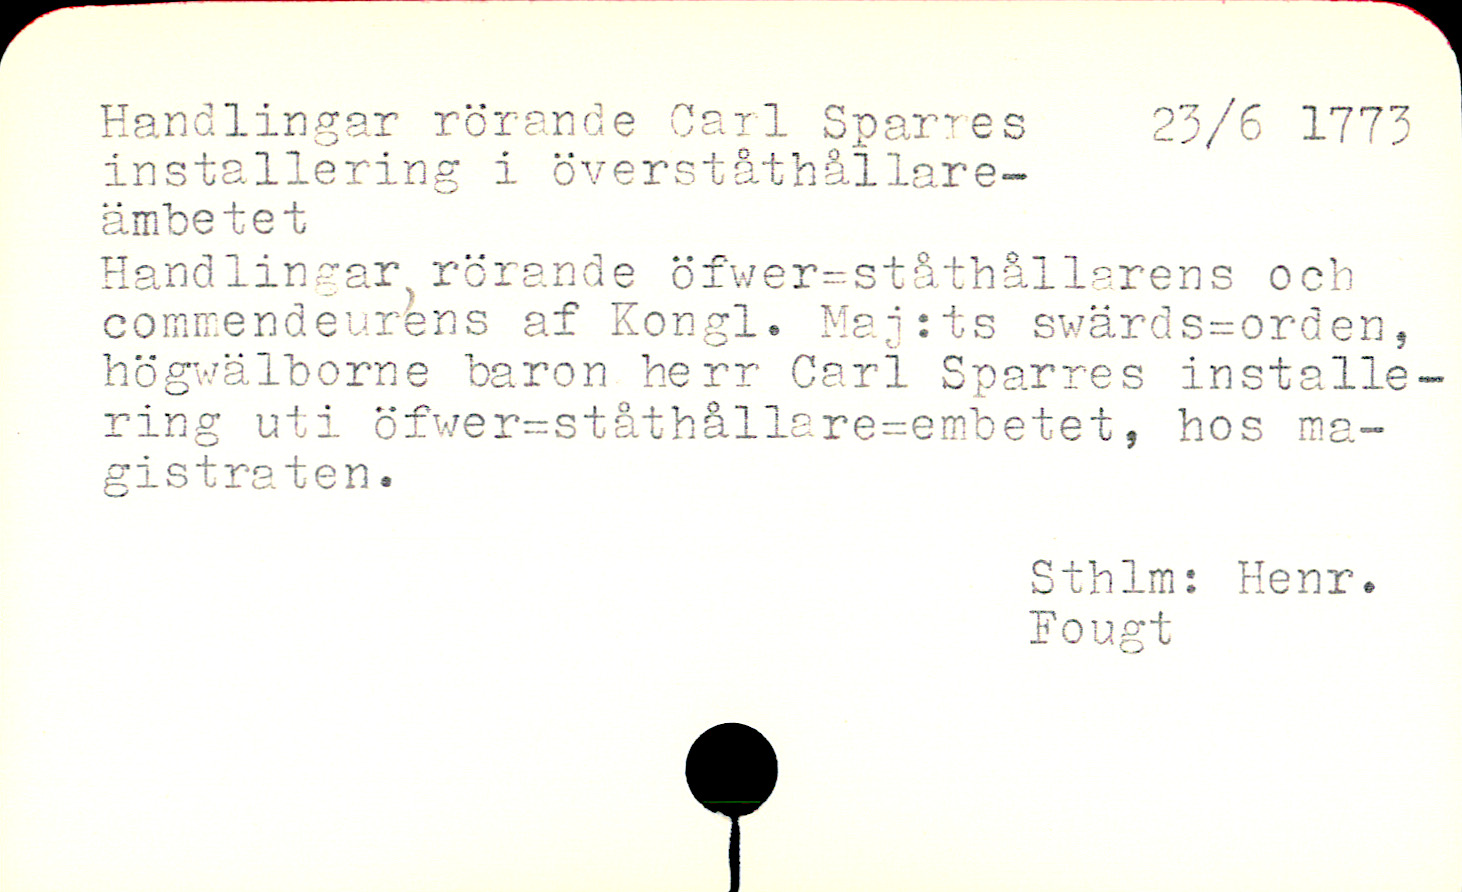 Handlingar rörande Carl Sparres 23/6 1773
installering i överståthållare-
ämbetet
Handlingar, rörande öfwer=ståthållarens och
commendeurens af Kongl. Maj:ts swärds=orden,
högwälborne baron herr Carl Sparres installe-
ring uti öfwer=ståthållare=embetet, hos ma-
gistraten.
Sthlm: Henr.
Fougt